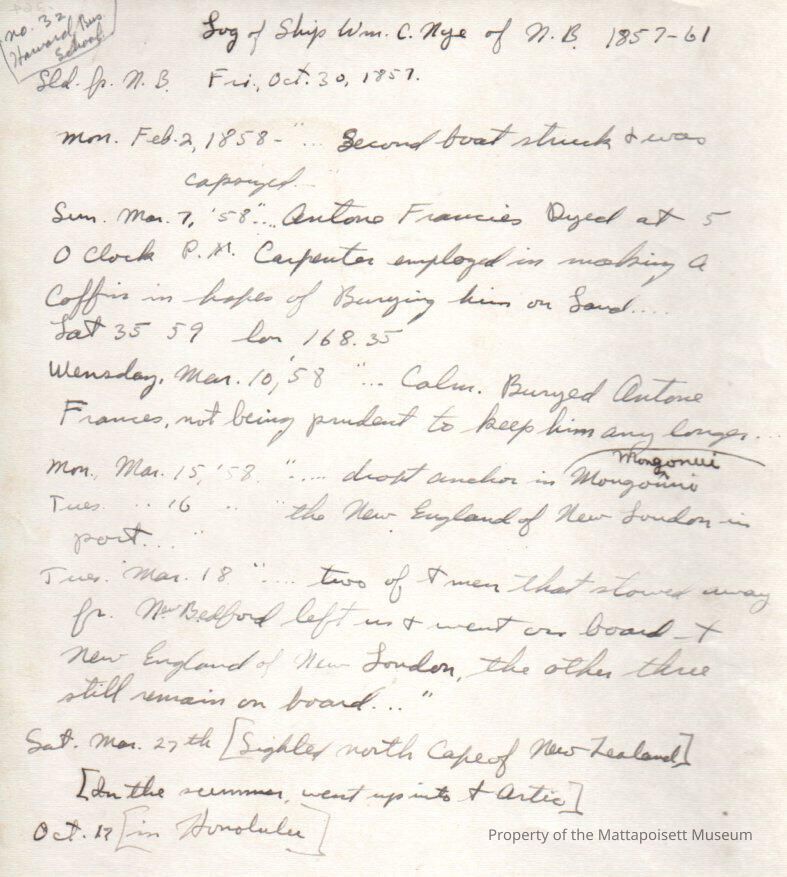 no. 32
Harvard Bus.
School
Log of Ship Wm. C. Nye of N.B. 1857-61
Sld. fr. N.B. Fri., Oct. 30, 1857.
Mon. Feb. 2, 1858 - "... Second boat struck & was
capsized...
Sun. Mar. 7, '58 "... Antone Francies Dyed at 5
O Clock P.M. Carpenter employed in making a
Coffin in hopes of Burying him on Land....
Lat 35 59 lon 168.35
Wensday, Mar. 10, '58 "... Calm. Buryed Antone
Frances, not being prudent to keep him any longer...
Mongonui
Mon, Mar. 15, '58 "..... dropt anchor in Mongonnio
Tues. .. 16 .. " the New England of New London in
port...."
Tues. Mar. 18 ".... two of t men that stowed away
fr. New Bedford left us & went on board t
New England of New London, the other three
still remain on board..."
Sat. Mar. 27th [Sighted north Cape of New Zealand]
[In the summer, went up into t Artic]
Oct. 17 [in Honolulu]
Property of the Mattapoisett Museum